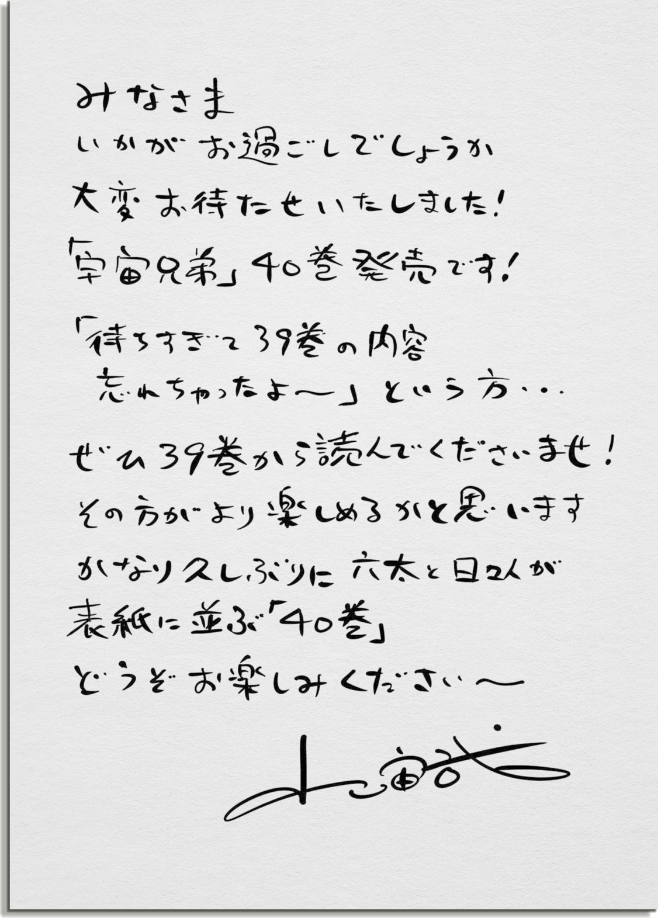 みなさま
いかがお過ごしでしょうか
大変お待たせいたしました!
「宇宙兄弟」40巻発売です!
「待ちすぎて39巻の内容
忘れちゃったよ〜」という方・・・
ぜひ39巻から読んでくださいませ!
その方がより楽しめるかと思います
かなり久しぶりに六太と日々人が
表紙に並ぶ「40巻」
どうぞお楽しみください〜